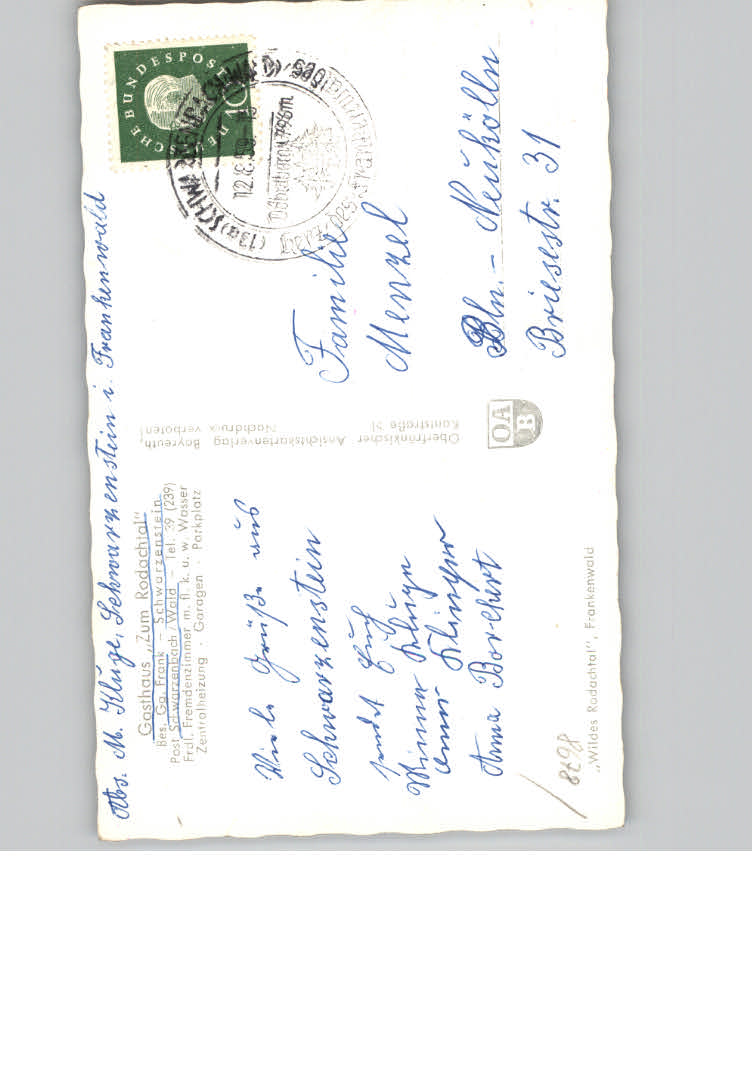 Abs. M. Kluge, Schwarzenstein i. Frankenwald
Gasthaus „Zum Rodachtal"
Bes. Gg. Frank - Schwarzenstein
Post Schwarzenbach/Wald - Tel. 39 (239)
Frdl. Fremdenzimmer m. fl. k. u. w. Wasser
Zentralheizung · Garagen · Parkplatz
Viele Grüße aus
Schwarzenstein
sendet Euch
Minna Kluge
Klinger
Anna Borchert
8698
„Wildes Rodachtal", Frankenwald
Oberfränkischer Ansichtskartenverlag Bayreuth,
Kantstraße 31 Nachdruck verboten!
OA
B
DEUTSCHE BUNDESPOST
10
(13a) SCHWARZENBACH
12.8.59
Döbraberg 798m
des Frankenwaldes
Familie
Menzel
Bln. - Neukölln
Briesestr. 31